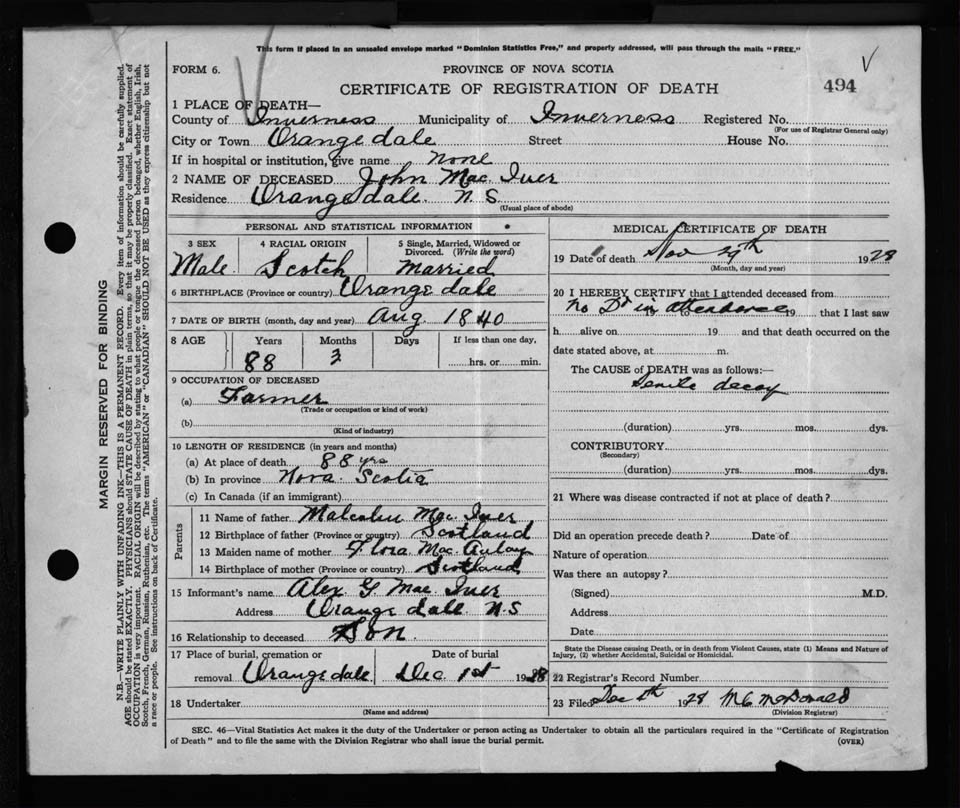 This form if placed in an unsealed envelope marked "Dominion Statistics Free," and properly addressed, will pass through the mails "FREE."
FORM 6.
PROVINCE OF NOVA SCOTIA
CERTIFICATE OF REGISTRATION OF DEATH
494
1 PLACE OF DEATH—
County of Inverness Municipality of Inverness Registered No.
(For use of Registrar General only)
City or Town Orangedale Street House No.
If in hospital or institution, give name None
2 NAME OF DECEASED John Mac Iver
Residence Orangedale. N.S.
(Usual place of abode)
PERSONAL AND STATISTICAL INFORMATION
3 SEX Male
4 RACIAL ORIGIN Scotch
5 Single, Married, Widowed or Divorced. (Write the word) Married
6 BIRTHPLACE (Province or country) Orangedale
7 DATE OF BIRTH (month, day and year) Aug. 1840
8 AGE Years Months Days If less than one day,
88 3 hrs. or min.
9 OCCUPATION OF DECEASED
(a) Farmer
(Trade or occupation or kind of work)
(b)
(Kind of industry)
10 LENGTH OF RESIDENCE (in years and months)
(a) At place of death 88 yrs
(b) In province Nova Scotia
(c) In Canada (if an immigrant)
Parents
11 Name of father Malcolm Mac Iver
12 Birthplace of father (Province or country) Scotland
13 Maiden name of mother Flora Mac Aulay
14 Birthplace of mother (Province or country) Scotland
15 Informant's name Alex G Mac Iver
Address Orangedale N.S
16 Relationship to deceased Son
17 Place of burial, cremation or removal Orangedale
Date of burial Dec 1st 1928
18 Undertaker
(Name and address)
MEDICAL CERTIFICATE OF DEATH
19 Date of death Nov 29th 1928
(Month, day and year)
20 I HEREBY CERTIFY that I attended deceased from
No Dr in attendance 19 that I last saw
h alive on 19 and that death occurred on the
date stated above, at m.
The CAUSE of DEATH was as follows:—
Senile decay
(duration) yrs. mos. dys.
CONTRIBUTORY
(Secondary)
(duration) yrs. mos. dys.
21 Where was disease contracted if not at place of death?
Did an operation precede death? Date of
Nature of operation
Was there an autopsy?
(Signed) M.D.
Address
Date
State the Disease causing Death, or in death from Violent Causes, state (1) Means and Nature of
Injury, (2) whether Accidental, Suicidal or Homicidal.
22 Registrar's Record Number
23 Filed Dec 1928 McDonald
(Division Registrar)
SEC. 46—Vital Statistics Act makes it the duty of the Undertaker or person acting as Undertaker to obtain all the particulars required in the "Certificate of Registration
of Death" and to file the same with the Division Registrar who shall issue the burial permit.
(OVER)
MARGIN RESERVED FOR BINDING
N.B.—WRITE PLAINLY WITH UNFADING INK—THIS IS A PERMANENT RECORD. Every item of information should be carefully supplied.
AGE should be stated EXACTLY. PHYSICIANS should STATE CAUSE OF DEATH in plain terms, so that it may be properly classified. Exact statement of
OCCUPATION is very important. RACIAL ORIGIN will be described by stating to what people or tongue the deceased person belonged, whether English, Irish,
Scotch, French, German, Russian, Ruthenian, etc. The terms "AMERICAN" or "CANADIAN" SHOULD NOT BE USED as they express citizenship but not
a race or people. See instructions on back of Certificate.